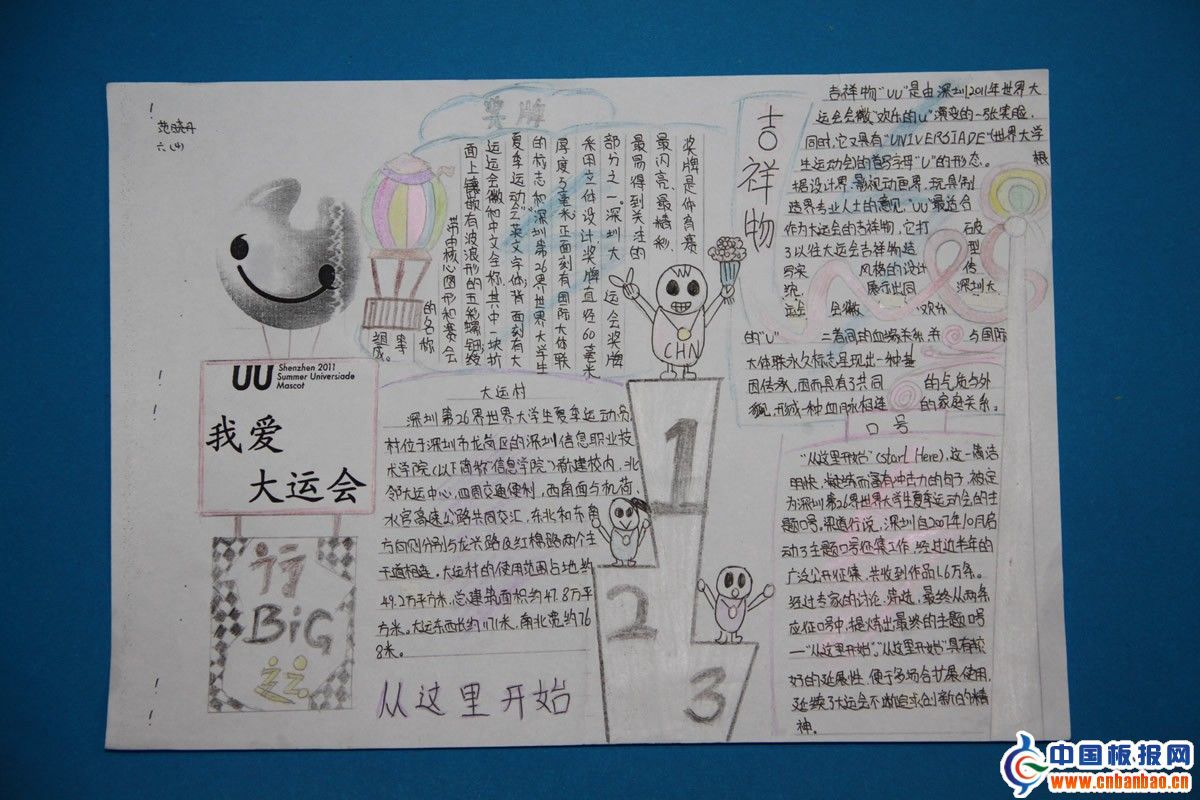 范晓丹
六(4)
UU
Shenzhen 2011
Summer Universiade
Mascot
我爱
大运会
行
BiG
运
奖牌
奖牌是体育赛
最闪亮、最精彩、
最易得到关注的
部分之一。深圳大
运会奖牌
采用立体设计,奖牌直径60毫米
厚度5毫米,正面刻有国际大体联
的标志和深圳第26界世界大学生
夏季运动会英文字体;背面刻有大
运会徽和中文全称,其中一块折
面上镶嵌有波浪形的五彩螺钿纹
带由核心图形和赛会
的名称
组成。
大运村
深圳第26界世界大学生夏季运动员
村位于深圳市龙岗区的深圳信息职业技
术学院(以下简称“信息学院”)新建校内,北
邻大运中心,四周交通便利,西南面与机荷、
水官高速公路共同交汇,东北和东南
方向则分别与龙兴路及红棉路两个主
干道相连。大运村的使用范围占地约
49.2万平方米,总建筑面积约47.8万平
方米。大运东西长约1171米,南北宽约76
8米。
从这里开始
CHN
1
2
3
吉祥物
吉祥物“UU”是由深圳2011年世界大
运会会徽“欢乐的u”演变的一张笑脸,
同时,它又具有“UNIVERSIADE”(世界大学
生运动会)的首写字母“U”的形态。 根
据设计界、影视动画界、玩具制
造界专业人士的意见,“UU”最适合
作为大运会的吉祥物,它打 破
了以往大运会吉祥物造 型
写实 风格的设计 传
统, 展示出同 深圳大
运会 会徽 “欢乐
的“U” 二者间的血缘关系,并 与国际
大体联永久标志呈现出一种基
因传承,因而具有了共同 的气质与外
貌,形成一种血脉相连 的家庭关系。
口号
“从这里开始”(Start Here),这一简洁
明快、凝练而富有冲击力的句子,被定
为深圳第26界世界大学生夏季运动会的主
题口号,渠道行说,深圳自2007年10月启
动了主题口号征集工作,经过近半年的
广泛公开征集,共收到作品1.6万条。
经过专家的讨论、筛选,最终从两条
应征口号中,提炼出最终的主题口号
—“从这里开始”。“从这里开始”具有较
好的延展性,便于多场合扩展使用,
延续了大运会不断追求创新的精
神。
中国板报网
www.cnbanbao.cn